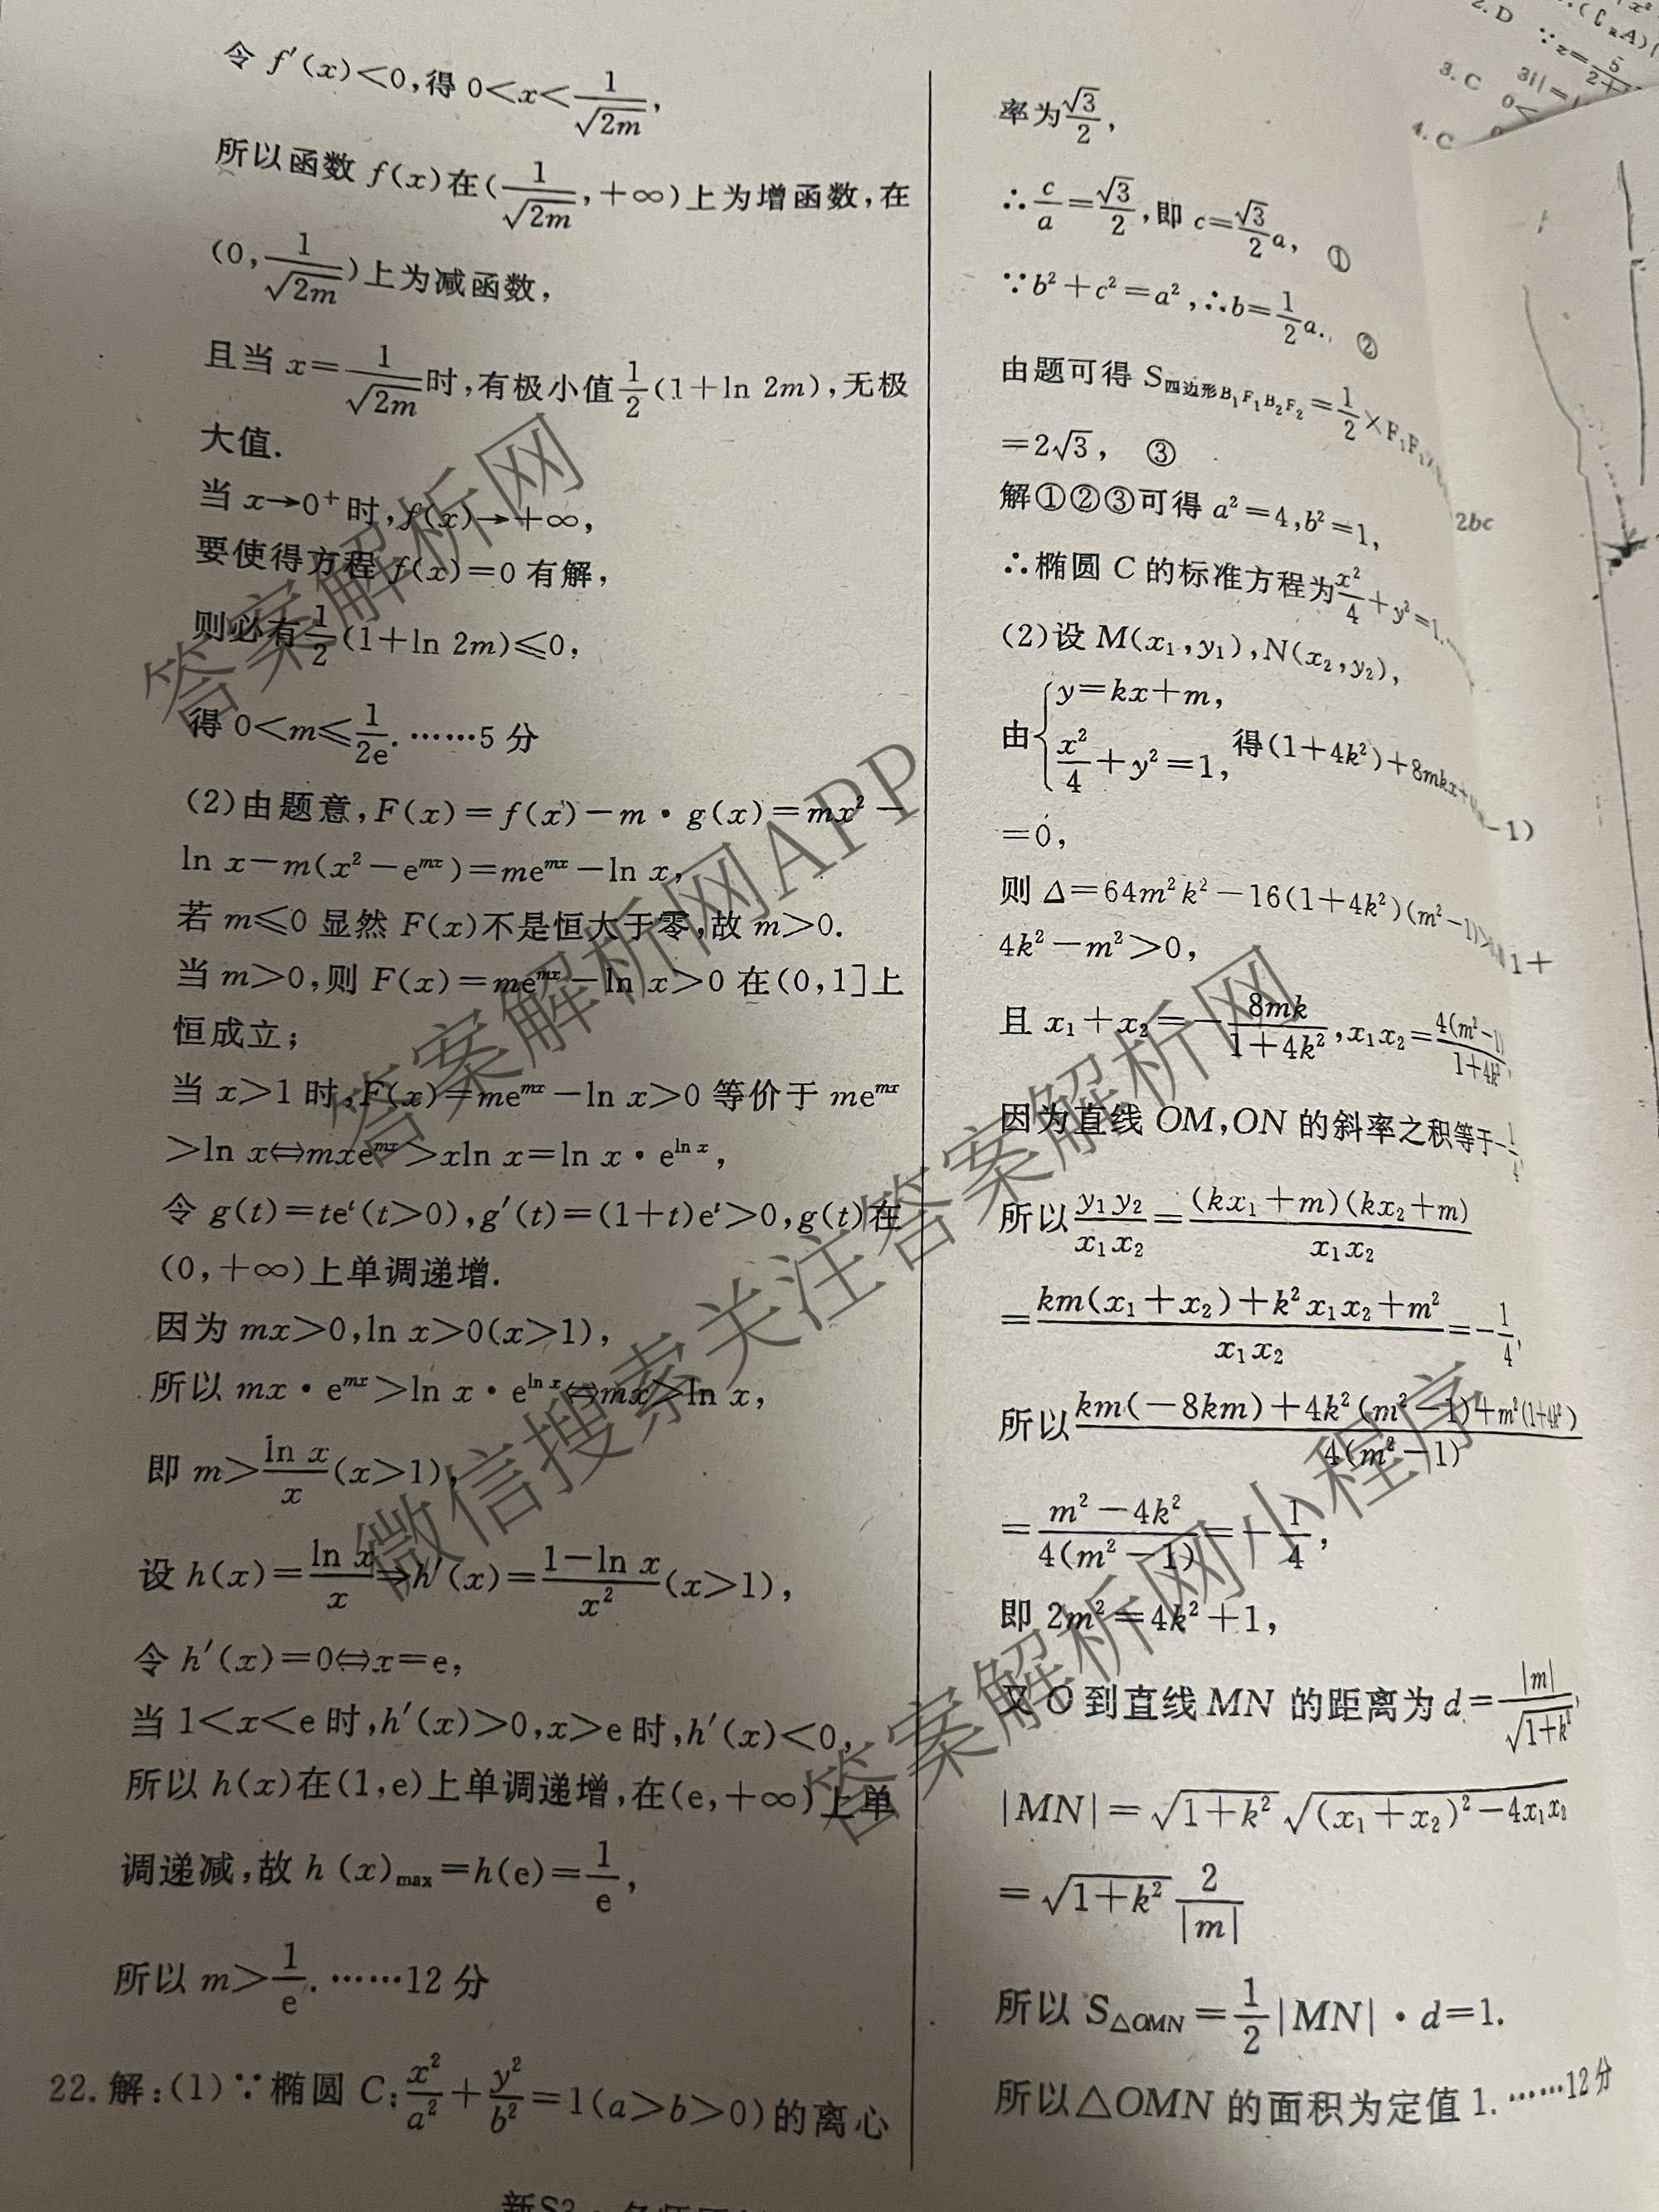 令 f′(x)<0,得 0<x<1/√(2m),
所以函数 f(x)在(1/√(2m),+∞)上为增函数,在
(0,1/√(2m))上为减函数,
且当 x=1/√(2m)时,有极小值1/2(1+ln 2m),无极
大值.
当 x→0⁺时,f(x)→+∞,
要使得方程 f(x)=0 有解,
则必有1/2(1+ln 2m)≤0,
得 0<m≤1/(2e).……5 分
(2)由题意,F(x)=f(x)-m·g(x)=mx²-
ln x-m(x²-e^(mx))=me^(mx)-ln x,
若 m≤0 显然 F(x)不是恒大于零,故 m>0.
当 m>0,则 F(x)=me^(mx)-ln x>0 在(0,1]上
恒成立;
当 x>1 时,F(x)=me^(mx)-ln x>0 等价于 me^(mx)
>ln x⇔mxe^(mx)>xln x=ln x·e^(ln x),
令 g(t)=te^t(t>0),g′(t)=(1+t)e^t>0,g(t)在
(0,+∞)上单调递增.
因为 mx>0,ln x>0(x>1),
所以 mx·e^(mx)>ln x·e^(ln x)⇔mx>ln x,
即 m>ln x/x(x>1),
设 h(x)=ln x/x⇒h′(x)=(1-ln x)/x²(x>1),
令 h′(x)=0⇔x=e,
当 1<x<e 时,h′(x)>0,x>e 时,h′(x)<0,
所以 h(x)在(1,e)上单调递增,在(e,+∞)上单
调递减,故 h(x)max=h(e)=1/e,
所以 m>1/e.……12 分
22.解:(1)∵椭圆 C:x²/a²+y²/b²=1(a>b>0)的离心
率为√3/2,
∴c/a=√3/2,即 c=√3/2 a, ①
∵b²+c²=a²,∴b=1/2 a. ②
由题可得 S四边形B₁F₁B₂F₂=1/2×F₁F₂
=2√3, ③
2bc
解①②③可得 a²=4,b²=1,
∴椭圆 C 的标准方程为x²/4+y²=1.
(2)设 M(x₁,y₁),N(x₂,y₂),
由{y=kx+m, x²/4+y²=1, 得(1+4k²)+8mkx+
-1)
=0,
则 Δ=64m²k²-16(1+4k²)(m²-1)>
1+
4k²-m²>0,
且 x₁+x₂=-8mk/(1+4k²),x₁x₂=4(m²-1)/(1+4k²),
因为直线 OM,ON 的斜率之积等于-1/4,
所以y₁y₂/(x₁x₂)=(kx₁+m)(kx₂+m)/(x₁x₂)
=(km(x₁+x₂)+k²x₁x₂+m²)/(x₁x₂)=-1/4,
所以(km(-8km)+4k²(m²-1)+m²(1+4k²))/(4(m²-1))
=(m²-4k²)/(4(m²-1))=-1/4,
即 2m²=4k²+1,
又 O 到直线 MN 的距离为 d=|m|/√(1+k²),
|MN|=√(1+k²)√((x₁+x₂)²-4x₁x₂)
=√(1+k²) 2/|m|
所以 S△OMN=1/2|MN|·d=1.
所以△OMN 的面积为定值 1.……12分
2.D
3.C
4.C
答案解析网
答案解析网APP
微信搜索关注答案解析网
答案解析网小程序